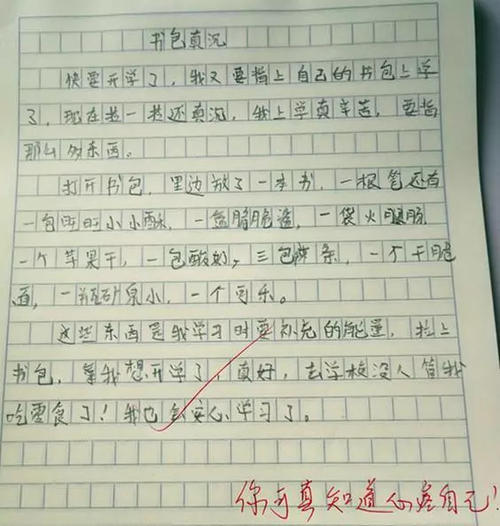 书包真沉
快要开学了，我又要背上自己的书包上学
了，现在背一背还真沉，我上学真辛苦，要背
那么多东西。
打开书包，里边放了一本书，一根笔还有
一包旺旺小小酥，一盒脆脆鲨，一袋火腿肠
一个苹果干，一包酸奶，三包辣条，一个干脆
面，一瓶矿泉水，一个可乐。
这些东西是我学习时要补充的能量，拉上
书包，背我想开学了，真好，去学校没人管我
吃零食了！我也会安心学习了。
你可真知道心疼自己！